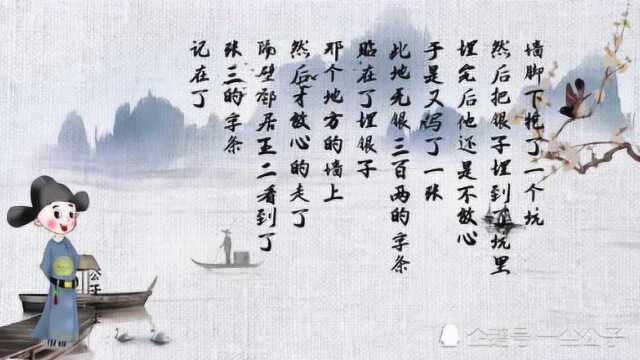 墙脚下挖了一个坑
然后把银子埋到了坑里
埋完后他还是不放心
于是又写了一张
此地无银三百两的字条
贴在了埋银子
那个地方的墙上
然后才放心的走了
隔壁邻居王二看到了
张三的字条
记在了
企鹅号